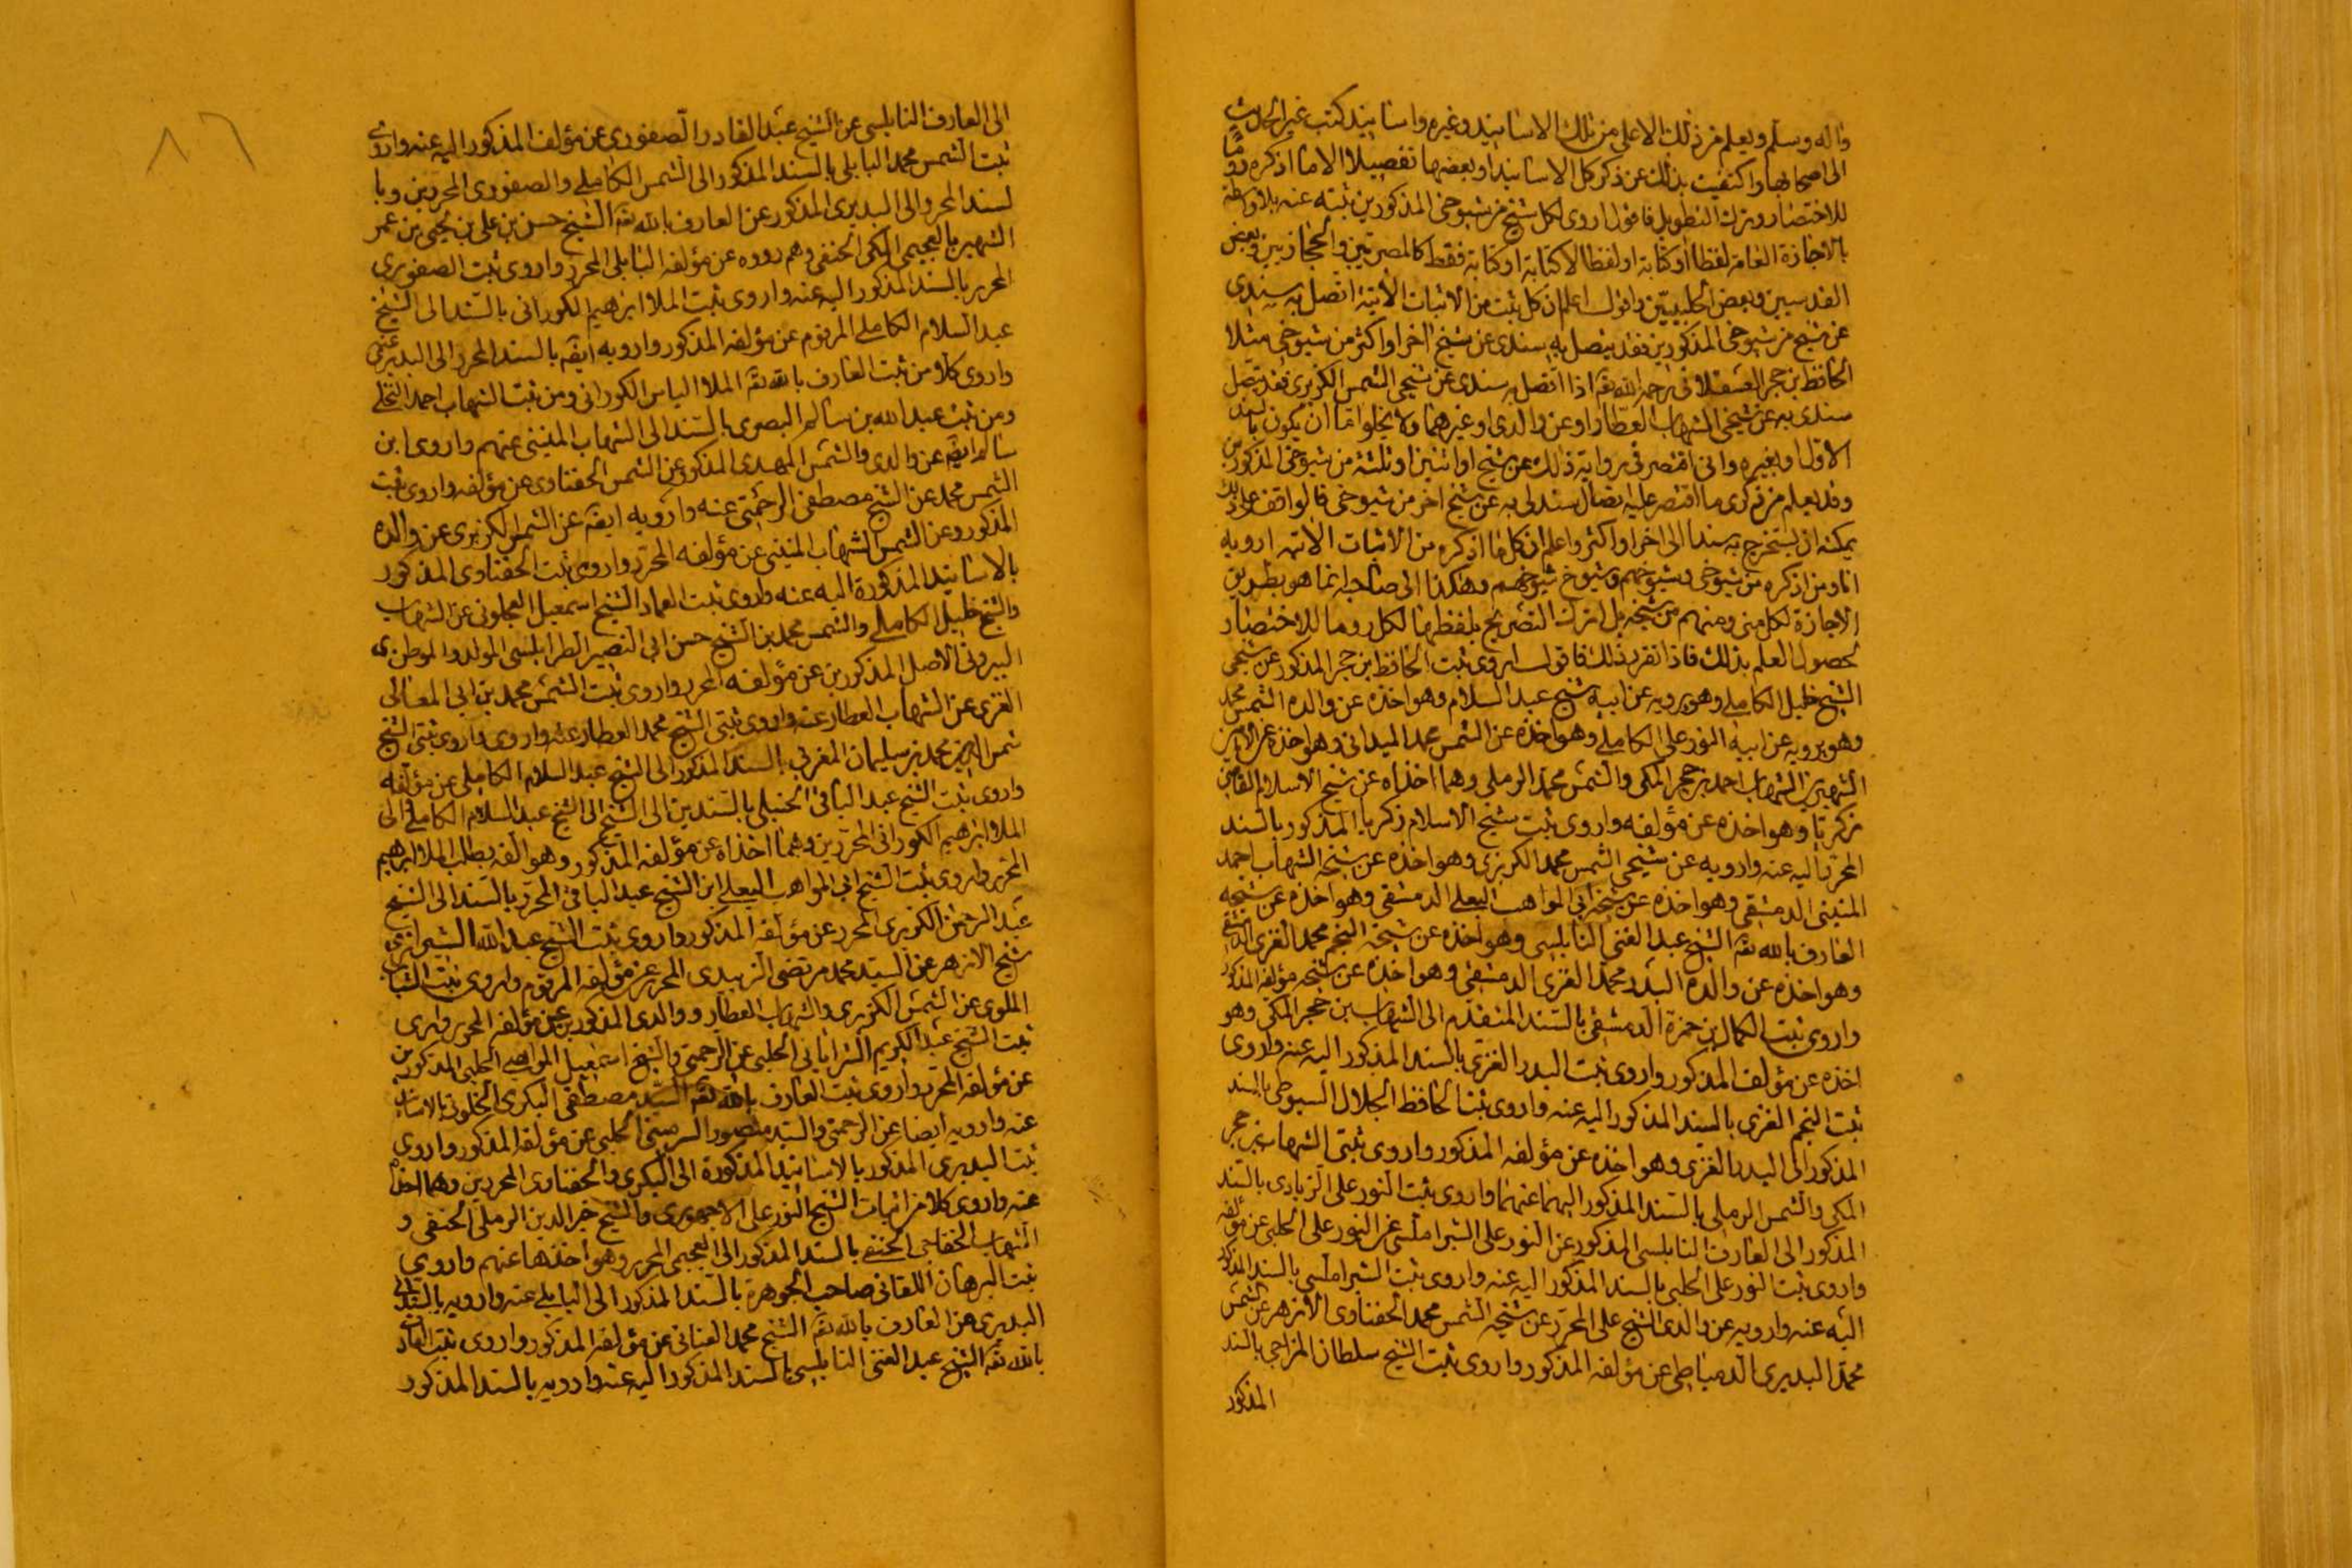 واله وسلم ويعلم من ذلك الاعلى من تلك الاسانيد وغيره واسانيد كتب غير الحديث
الى اصحابها واكتفيت بذلك عن ذكر كل الاسانيد او بعضها تفصيلا الا ما اذكره روما
للاختصار وترك التطويل فاقول اروى لكل شيخ من شيوخى المذكورين ثبته عنه بلا واسطة
بالاجازة العامة لفظا او كتابة او لفظا لا كتابة او كتابة فقط كالمصريين والحجازيين وبعض
القدسيين وبعض الحلبيين واقول اعلم ان كل ثبت من الاثبات الاتية اتصل به سندى
عن شيخ من شيوخى المذكورين فقد يتصل به سندى عن شيخ اخر او اكثر من شيوخى مثلا
الحافظ بن حجر العسقلانى رحمه الله تعه اذا اتصل به سندى عن شيخى الشمس الكزبرى فقد يتصل
سندى به عن شيخى الشهاب العطار او عن والدى او غيرهما ولا يخلوا اما ان يكون بالسند
الاول او بغيره وانى اقتصر فى رواية ذلك عن شيخ او اثنين او ثلثة من شيوخى المذكورين
وقد يعلم من ذكرى ما اقتصر عليه اتصال سندى به عن شيخ اخر من شيوخى فالواقف على ذلك
يمكنه ان يستخرج به سندا الى اخر او اكثر واعلم ان كل ما اذكره من الاثبات الاتيه ارويه
انا ومن اذكره من شيوخى وشيوخهم وشيوخ شيوخهم وهكذا الى صاحبه انما هو بطريق
الاجازة لكل منى ومنهم من شيخه بل اترك التصريح بلفظها لكل روما للاختصار
لحصول العلم بذلك فاذا تقرر ذلك فاقول اروى ثبت الحافظ بن حجر المذكور عن شيخى
الشيخ خليل الكاملى وهو يرويه عن ابيه شيخ عبد السلام وهو اخذه عن والده الشمس محمد
وهو يرويه عن ابيه النور على الكاملى وهو اخذه عن الشمس محمد الميدانى وهو اخذه عن الامامين
الشهيرين الشهاب احمد بن حجر المكى والشمس محمد الرملى وهما اخذاه عن شيخ الاسلام القاضى
زكريا وهو اخذه عن مؤلفه واروى ثبت شيخ الاسلام زكريا المذكور بالسند
المحرر اليه عنه وارويه عن شيخى الشمس محمد الكزبرى وهو اخذه عن شيخه الشهاب احمد
المنينى الدمشقى وهو اخذه عن شيخه ابى المواهب البعلى الدمشقى وهو اخذه عن شيخه
العارف بالله تعه الشيخ عبد الغنى النابلسى وهو اخذه عن شيخه النجم محمد الغزى الدمشقى
وهو اخذه عن والده البدر محمد الغزى الدمشقى وهو اخذه عن شيخه مؤلفه المذكور
واروى ثبت الكمال بن حمزة الدمشقى بالسند المتقدم الى الشهاب بن حجر المكى وهو
اخذه عن مؤلفه المذكور واروى ثبت البدر الغزى بالسند المذكور اليه عنه واروى
ثبت النجم الغزى بالسند المذكور اليه عنه واروى ثبت الحافظ الجلال السيوطى بالسند
المذكور الى البدر الغزى وهو اخذه عن مؤلفه المذكور واروى ثبتى الشهاب بن حجر
المكى والشمس الرملى بالسند المذكور اليهما عنهما واروى ثبت النور على الزيادى بالسند
المذكور الى العارف النابلسى المذكور عن النور على الشبراملسى عن النور على الحلبى عن مؤلفه
واروى ثبت النور على الحلبى بالسند المذكور اليه عنه واروى ثبت الشبراملسى بالسند المذكور
اليه عنه وارويه عن والدى الشيخ على المحرر عن شيخه الشمس محمد الحفناوى الازهر عن الشمس
محمد البديرى الدمياطى عن مؤلفه المذكور واروى ثبت الشيخ سلطان المزاحى بالسند
المذكور
٨٦
الى العارف النابلسى عن الشيخ عبد القادر الصفورى عن مؤلفه المذكور اليه عنه واروى
ثبت الشمس محمد البابلى بالسند المذكور الى الشمس الكاملى والصفورى المحررين وبا
لسند المحرر الى البديرى المذكور عن العارف بالله تعه الشيخ حسن بن على بن يحيى بن عمر
الشهير بالعجيمى المكى الحنفى وهم رووه عن مؤلفه البابلى المحرر واروى ثبت الصفورى
المحرر بالسند المذكور اليه عنه واروى ثبت الملا ابراهيم الكورانى بالسند الى الشيخ
عبد السلام الكاملى المرقوم عن مؤلفه المذكور وارويه ايضه بالسند المحرر الى البديرى عنه
واروى كلا من ثبت العارف بالله تعه الملا الياس الكورانى ومن ثبت الشهاب احمد النخلى
ومن ثبت عبد الله بن سالم البصرى بالسند الى الشهاب المنينى عنهم واروى ابن
سالم ايضه عن والدى والشمس المهدى المذكور عن الشمس الحفناوى عن مؤلفه واروى ثبت
الشمس محمد عن الشيخ مصطفى الرحمتى عنه وارويه ايضه عن الشمس الكزبرى عن والده
المذكور وعن الشمس الشهاب المنينى عن مؤلفه المحرر واروى ثبت الحفناوى المذكور
بالاسانيد المذكورة اليه عنه واروى ثبت العماد الشيخ اسمعيل العجلونى عن الشهاب
والشيخ خليل الكاملى والشمس محمد بن الشيخ حسن ابى النصير الطرابلسى المولد والموطن
البيروتى الاصل المذكورين عن مؤلفه المحرر واروى ثبت الشمس محمد بن ابى المعالى
الغزى عن الشهاب العطار عنه واروى ثبتى الشيخ محمد العطار عنه واروى واروى ثبتى الشيخ
شمس الدين محمد بن سليمان المغربى بالسند المذكور الى الشيخ عبد السلام الكاملى عن مؤلفه
واروى ثبت الشيخ عبد الباقى الحنبلى بالسندين الى الشيخ الى الشيخ عبد السلام الكاملى الى
الملا ابراهيم الكورانى المحررين وهما اخذاه عن مؤلفه المذكور وهو الفه بطلب الملا ابراهيم
المحرر واروى ثبت الشيخ ابى المواهب البعلى ابن الشيخ عبد الباقى المحرر بالسند الى الشيخ
عبد الرحمن الكزبرى المحرر عن مؤلفه المذكور واروى ثبت الشيخ عبد الله الشبراوى
شيخ الازهر عن السيد محمد مرتضى الزبيدى المحرر عن مؤلفه المرقوم واروى ثبت الشهاب
الملوى عن الشمس الكزبرى والشهاب العطار ووالدى المذكورين عن مؤلفه المحرر واروى
ثبت الشيخ عبد الكريم الشراباتى الحلبى عن الرحمتى والشيخ اسمعيل المواهبى الحلبى المذكورين
عن مؤلفه المحرر واروى ثبت العارف بالله تعه السيد مصطفى البكرى الخلوتى بالاسانيد
عنه وارويه ايضا عن الرحمتى والسيد منصور السرمينى الحلبى عن مؤلفه المذكور واروى
ثبت البديرى المذكور بالاسانيد المذكورة الى البكرى والحفناوى المحررين وهما اخذاه
عنه واروى كلا من اثبات الشيخ النور على الاجهورى والشيخ خير الدين الرملى الحنفى و
الشهاب الخفاجى الحنفى بالسند المذكور الى العجيمى المحرر وهو اخذها عنهم واروى
ثبت البرهان اللقانى صاحب الجوهرة بالسند المذكور الى البابلى عنه وارويه بالسند الى
البديرى عن العارف بالله تعه الشيخ محمد العنانى عن مؤلفه المذكور واروى ثبت العارف
بالله تعه الشيخ عبد الغنى النابلسى بالسند المذكور اليه عنه وارويه بالسند المذكور